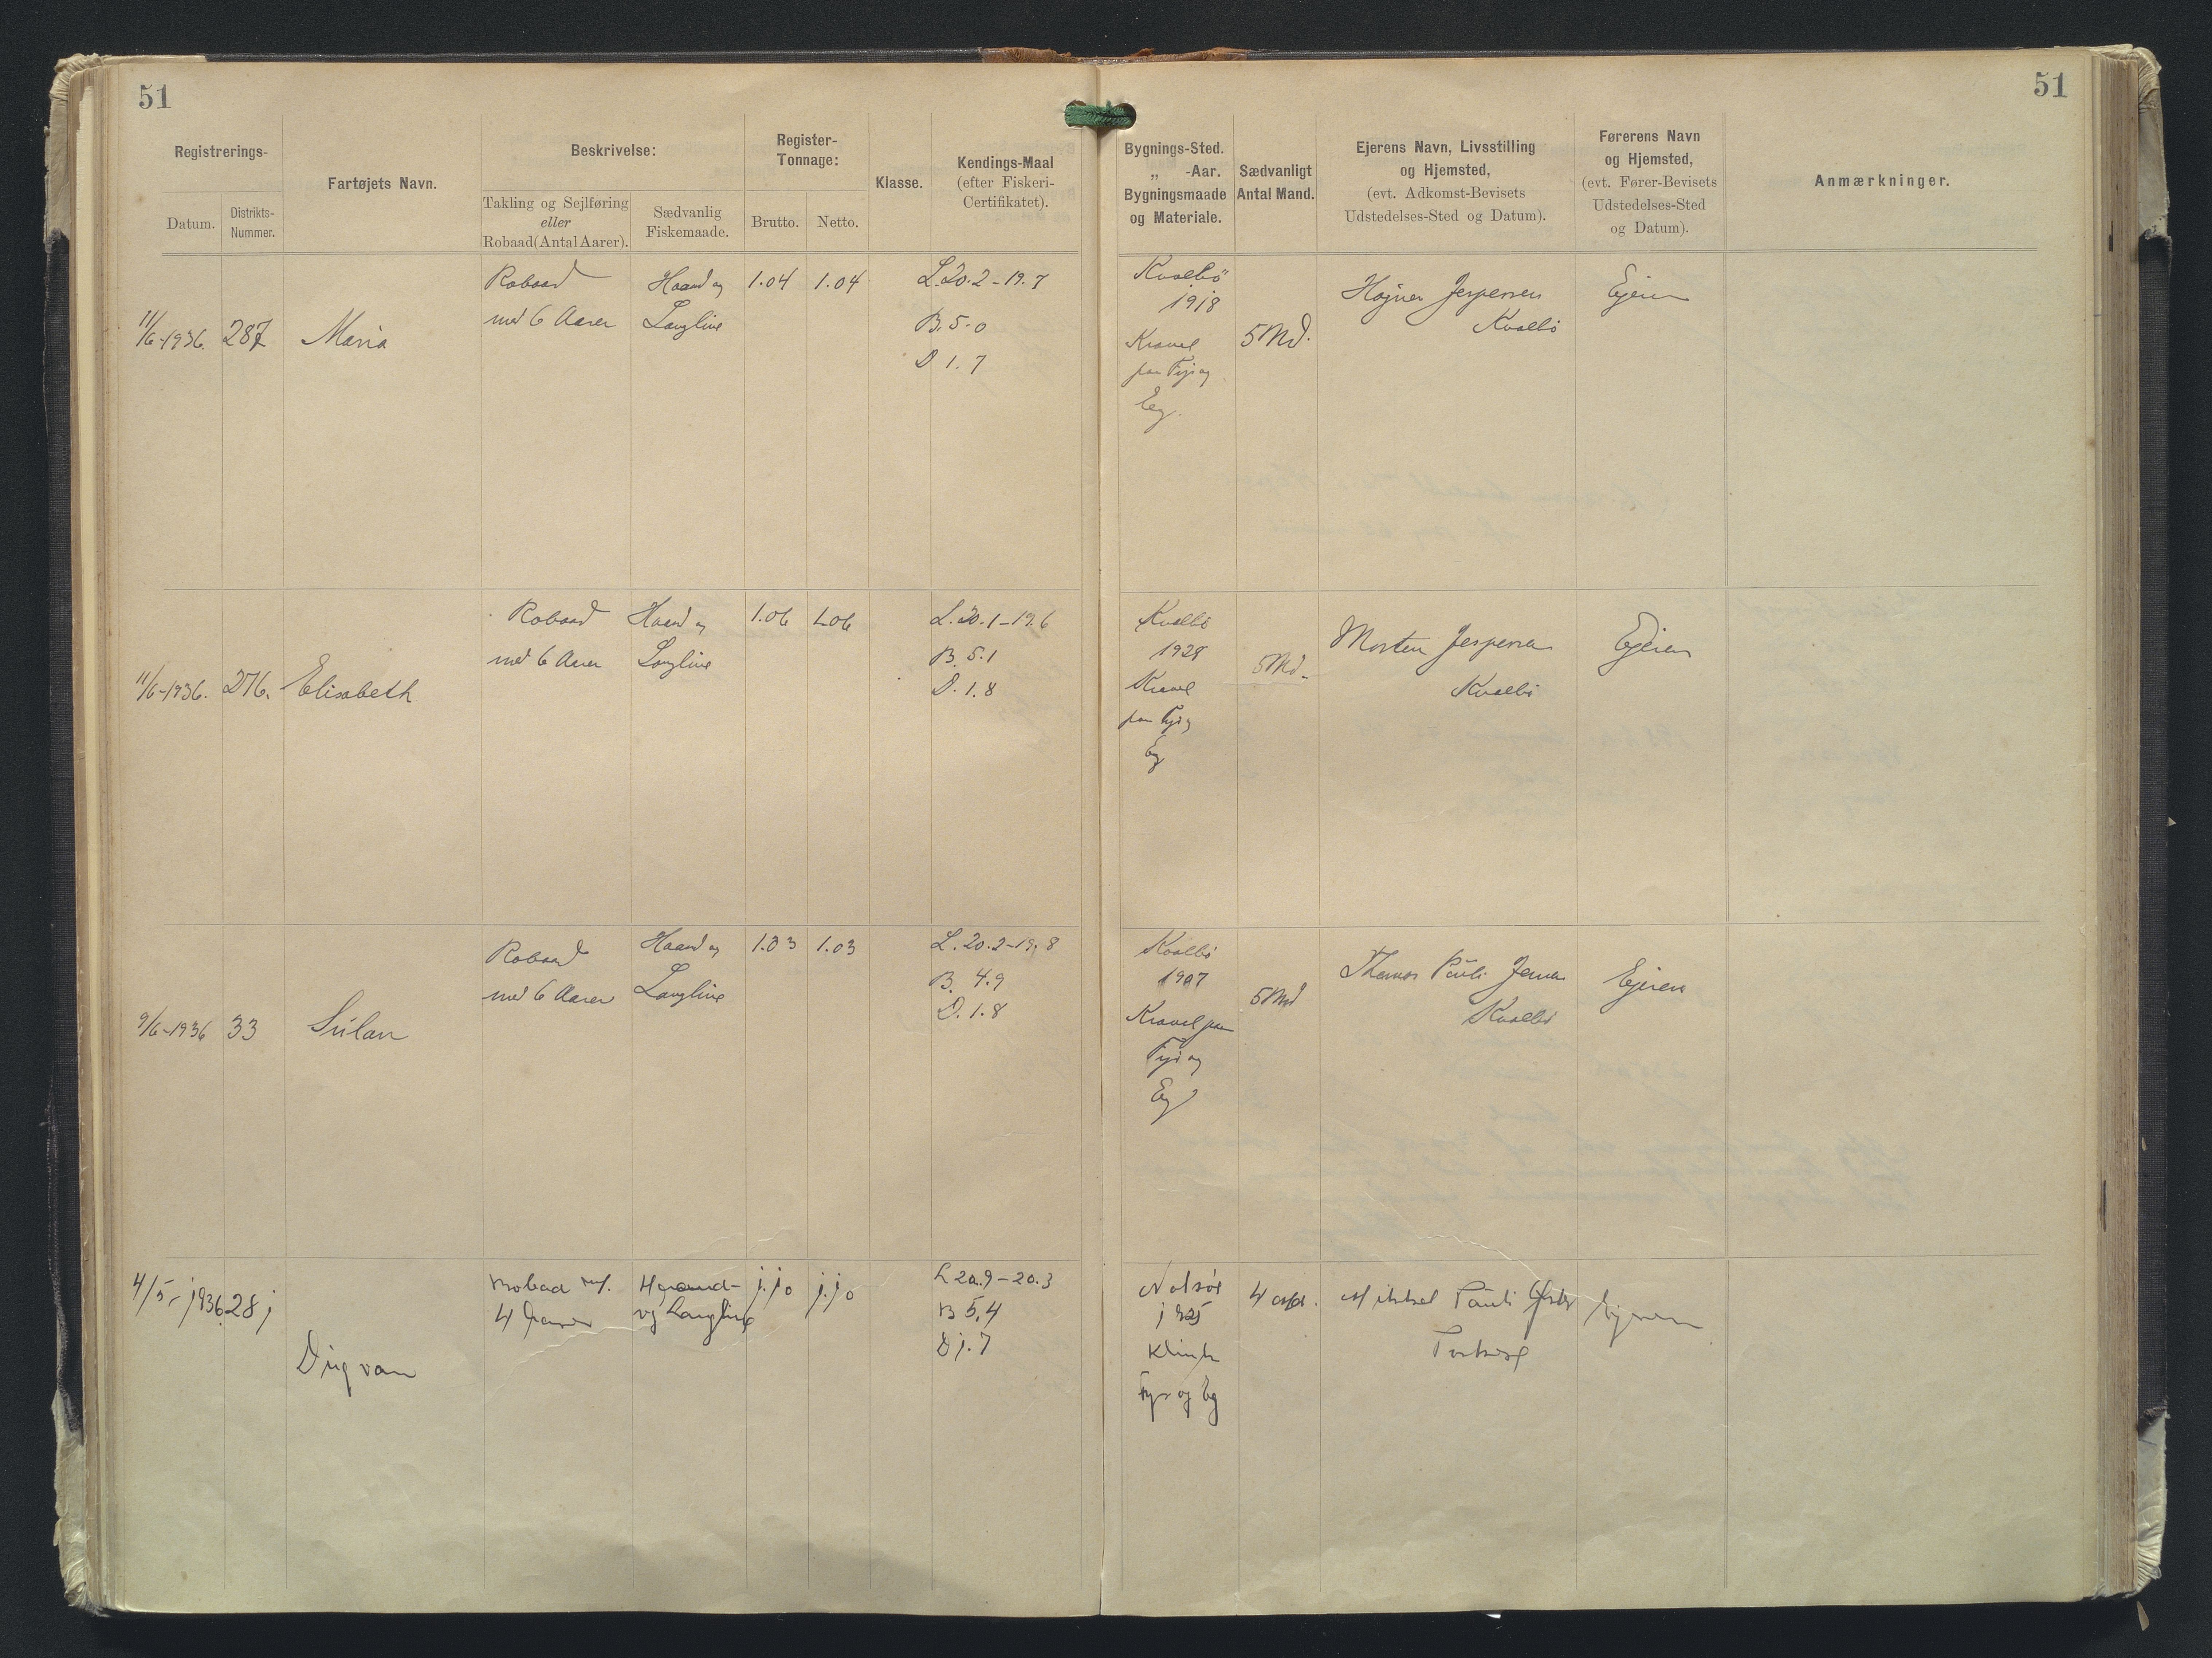 51
51
Registrerings-
Datum.
Distrikts-
Nummer.
Fartøjets Navn.
Beskrivelse:
Takling og Sejlføring
eller
Robaad (Antal Aarer).
Sædvanlig
Fiskemaade.
Register-
Tonnage:
Brutto.
Netto.
Klasse.
Kendings-Maal
(efter Fiskeri-
Certifikatet).
Bygnings-Sted.
„ -Aar.
Bygningsmaade
og Materiale.
Sædvanligt
Antal Mand.
Ejerens Navn, Livsstilling
og Hjemsted,
(evt. Adkomst-Bevisets
Udstedelses-Sted og Datum).
Førerens Navn
og Hjemsted,
(evt. Fører-Bevisets
Udstedelses-Sted
og Datum).
Anmærkninger.
11/6-1936. 287 Maria
Robaad
med 6 Aarer
Haand og
Langline
1.04 1.04
L. 20.2-19.7
B. 5.0
D 1.7
Kvalbö
1918
Kravel
paa Fyr og
Eeg.
5 Md.
Jespersen
Kvalbö
Ejeren
11/6-1936. 276. Elisabeth
Robaad
med 6 Aarer
Haand og
Langline
1.06 1.06
L. 20.1-19.6
B. 5.1
D. 1.8
Kvalbö
1928
Kravel
paa Fyr og
Eg
5 Md.
Morten Jespersen
Kvalbö
Ejeren
9/6-1936 33 Súlan
Robaad
med 6 Aarer
Haand og
Langline
1.03 1.03
L. 20.2-19.8
B. 4.9
D. 1.8
Kvalbö
1907
Kravel paa
Fyr og
Eg
5 Md
Thomas Pauli Jensen
Kvalbö
Ejeren
4/5-1936. 281
Robaad m.
4 Aarer
Haand-
og Langline
1.10 1.10
L 20.9-20.3
B 5,4
D 1.7
Nolsöe
1925
Klink
Fyr og Eg
4 Md.
Mikkel Pauli
Ejeren